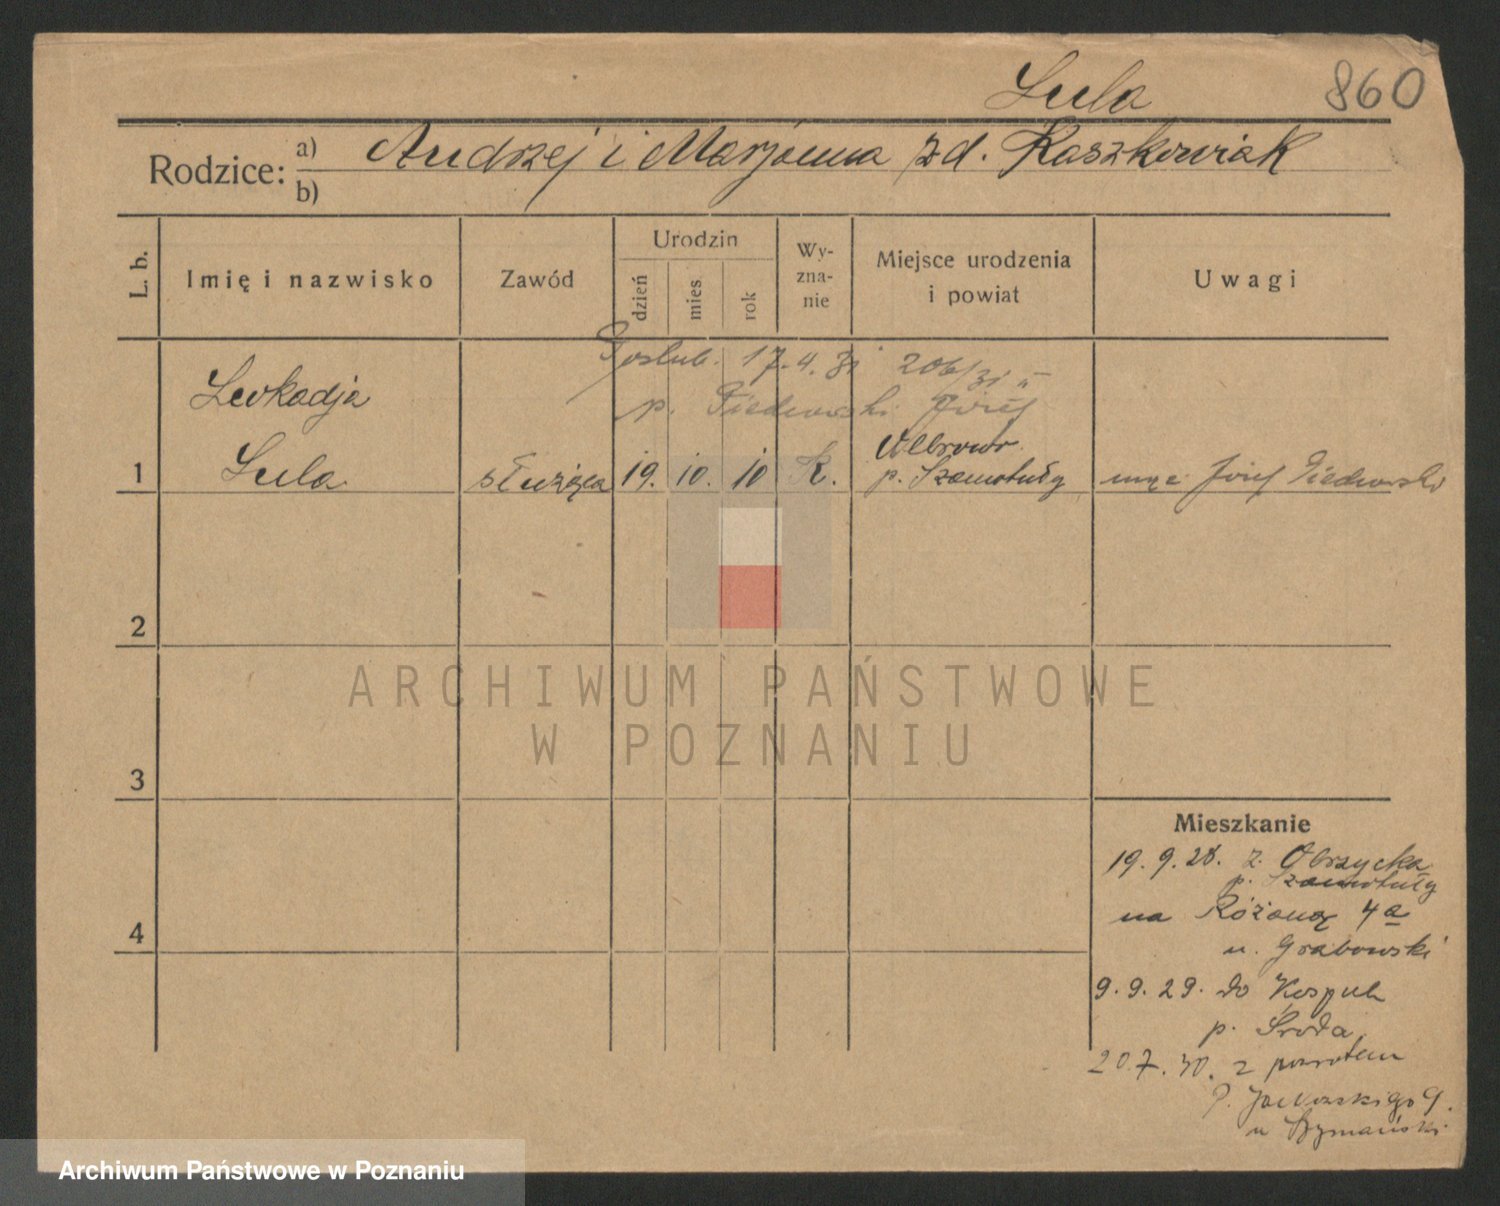 Lula 860
Rodzice: a) Andrzej i Marjanna zd. Kaszkowiak
b)
L. b. Imię i nazwisko Zawód Urodzin dzień mies. rok Wy-zna-nie Miejsce urodzenia i powiat Uwagi
Poślub. 17.4.31 206/31
p. Józef
Leokadja
1 Lula służąca 19. 10. 10 K. p. Szamotuły mąż Józef
2
ARCHIWUM PAŃSTWOWE
W POZNANIU
3
Mieszkanie
19.9.28. z Obrzycka
p. Szamotuły
4 na Różaną 4a
u. Grabowski
9.9.29. do
p. Środa
20.7.30. z powrotem
u Szymański
Archiwum Państwowe w Poznaniu